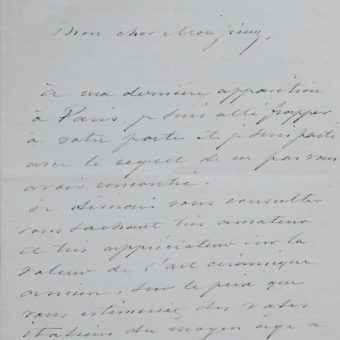 Mon cher Monsieur,
à ma dernière apparition
à Paris je suis allé frapper
à votre porte et je suis parti
avec le regret de ne pas vous
avoir rencontré.
Je désirais vous consulter
vous sachant très amateur
et très appréciateur sur la
valeur de l'art céramique
ancien. Sur le prix que
vous estimeriez des vases
italiens du moyen âge à